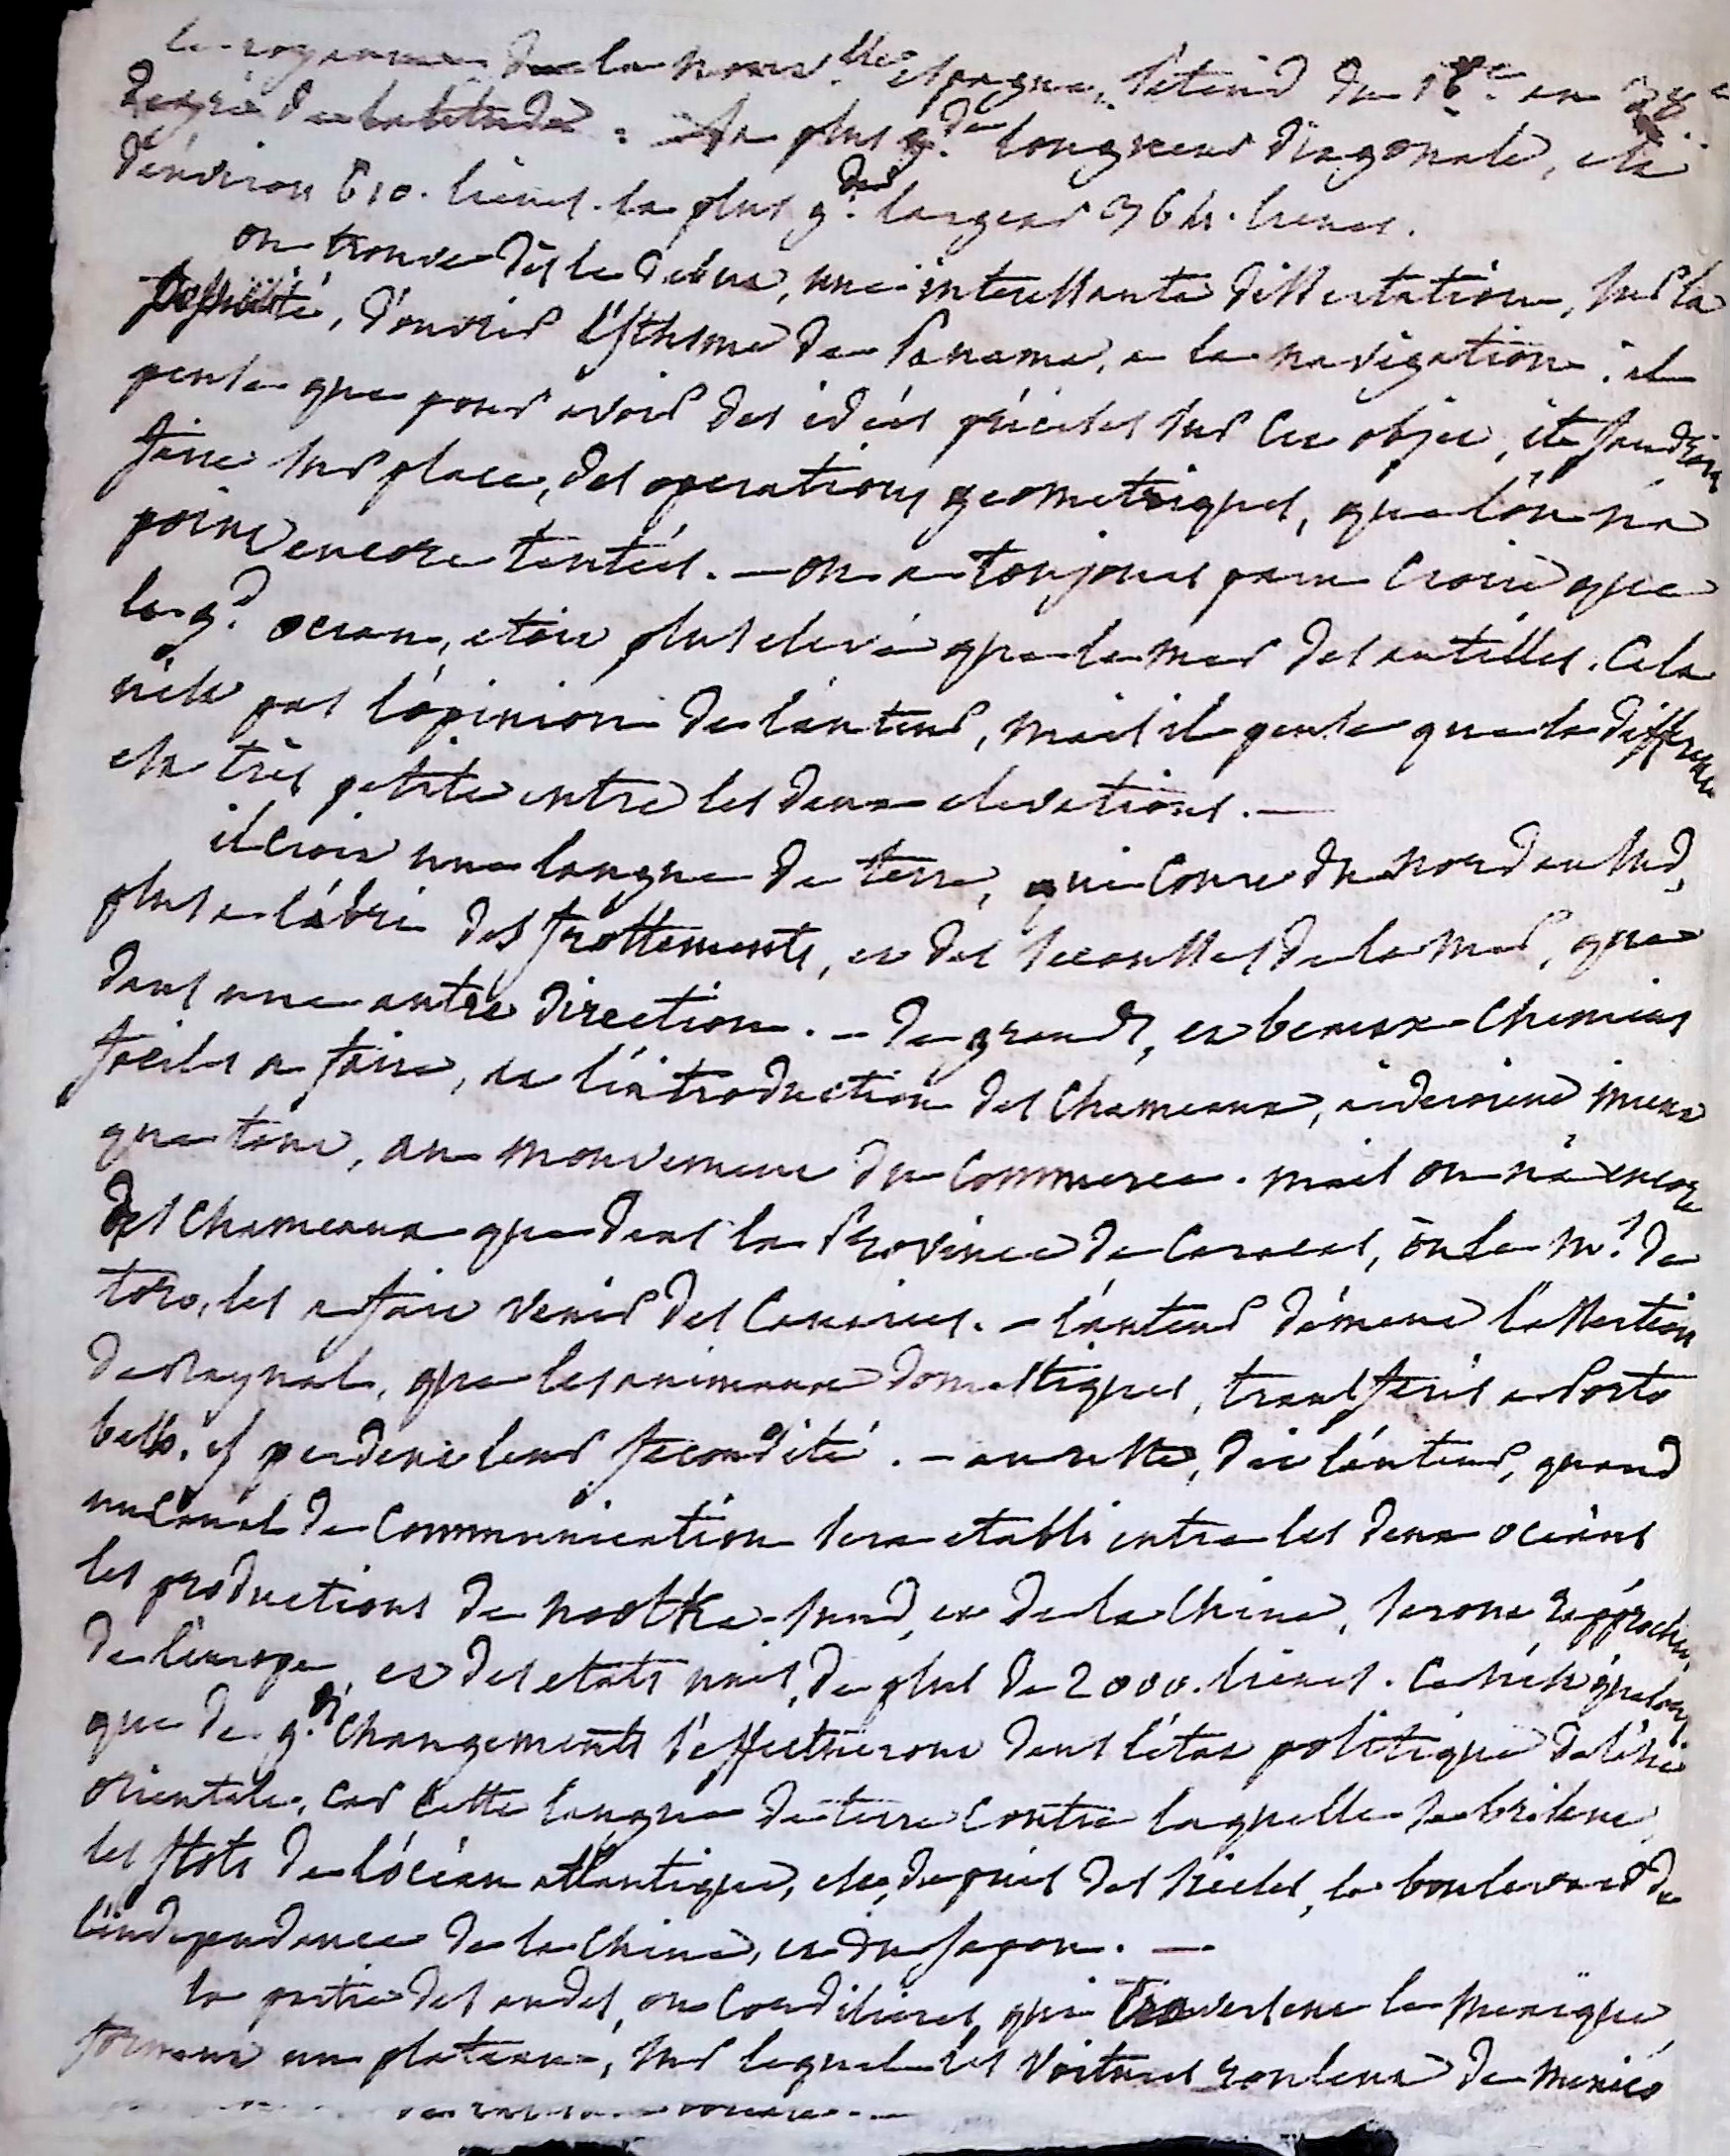 le royaume de la nouv.lle espagne, s'etend du 16e au 38e
degré de latitude : sa plus g.de longueur diagonale, est
d'environ 610. lieues. la plus g.de largeur 364. lieues.
on trouve dès le debut, une interessante dissertation, sur la
possibilité, d'ouvrir l'isthme de Panama, a la navigation. il
pense que pour avoir des idées précises sur cet objet, il faudroit
faire sur place, des operations geometriques, que l'on n'a
point encore tentées. — on a toujours paru croire que
le g.d ocean, etoit plus elevé que la mer des antilles. Cela
n'est pas l'opinion de l'auteur, mais il pense que la difference
est très petite entre les deux elevations. —
il croit une langue de terre, qui court du nord au sud,
plus a l'abri des frottements, et des secousses de la mer, que
dans une autre direction. — de grands, et beaux chemins
faciles a faire, et l'introduction des chameaux, aideroient mieux
que tout, au mouvement du commerce. mais on n'a encore
des chameaux que dans la Province de Caracas, où le m.s de
toro, les a fait venir des Canaries. — l'auteur dément l'assertion
de Raynal, que les animaux domestiques, transferés a Porto
bello, y perdent leur fecondité. — au reste, dit l'auteur, quand
un Canal de Communication sera etabli entre les deux océans
les productions de nootka-sund, et de la Chine, seront rapprochées
de l'europe, et des etats unis, de plus de 2000. lieues. Ce n'est qu'alors
que de g.ds changements s'effectueront dans l'état politique de l'asie
orientale, car cette langue de terre contre laquelle se brisent
les flots de l'océan atlantique, est, depuis des siecles, le boulevard de
l'independance de la Chine, et du Japon. —
la partie des andes, ou Cordilieres, qui traversent le mexique
forment un plateau, sur lequel les voitures roulent de mexico